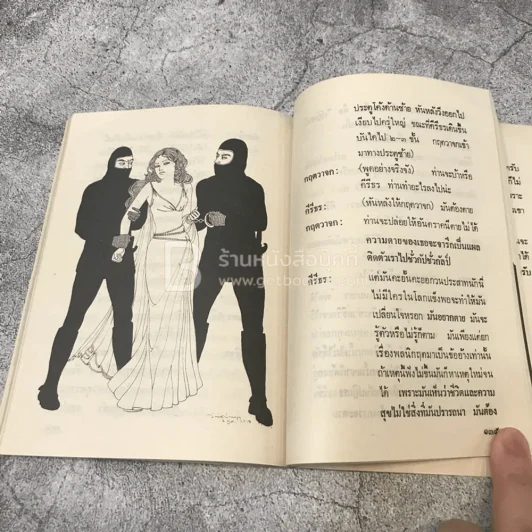 ประตูโค้งด้านซ้าย หันหลังวิ่งออกไป
เงียบไปครู่ใหญ่ ขณะที่คีรีธรเดินขึ้น
บันไดไป ๒-๓ ขั้น กฤตวาจกเข้า
มาทางประตูซ้าย)
กฤตวาจก : (พูดอย่างจริงจัง) ท่านจะบ้าหรือ
คีรีธร ท่านทำอะไรลงไปน่ะ
คีรีธร : (หันหลังให้กฤตวาจก) มันต้องตาย
กฤตวาจก : ท่านจะปล่อยให้อันตราคนีตายไม่ได้
ความตายของเธอจะจารึกเป็นแผล
ติดตัวเราไปชั่วกัปชั่วกัลป์
คีรีธร : แต่มันคะยั้นคะยอกวนประสาทนักนี่
ไม่มีใครในโลกแข็งพอจะทำให้มัน
เปลี่ยนใจหรอก มันอยากตาย มันจะ
รู้ตัวหรือไม่รู้ก็ตาม มันเพียงแต่ยก
เรื่องพลนิกฤตมาเป็นข้ออ้างเท่านั้น
ถ้าเหตุนี้ฟังไม่ขึ้นมันก็หาเหตุใหม่จน
ได้ เพราะมันเห็นว่าชีวิตและความ
สุขไม่ใช่สิ่งที่มันปรารถนา มันต้อง
๑๓๕
ร้านหนังสือนัทที